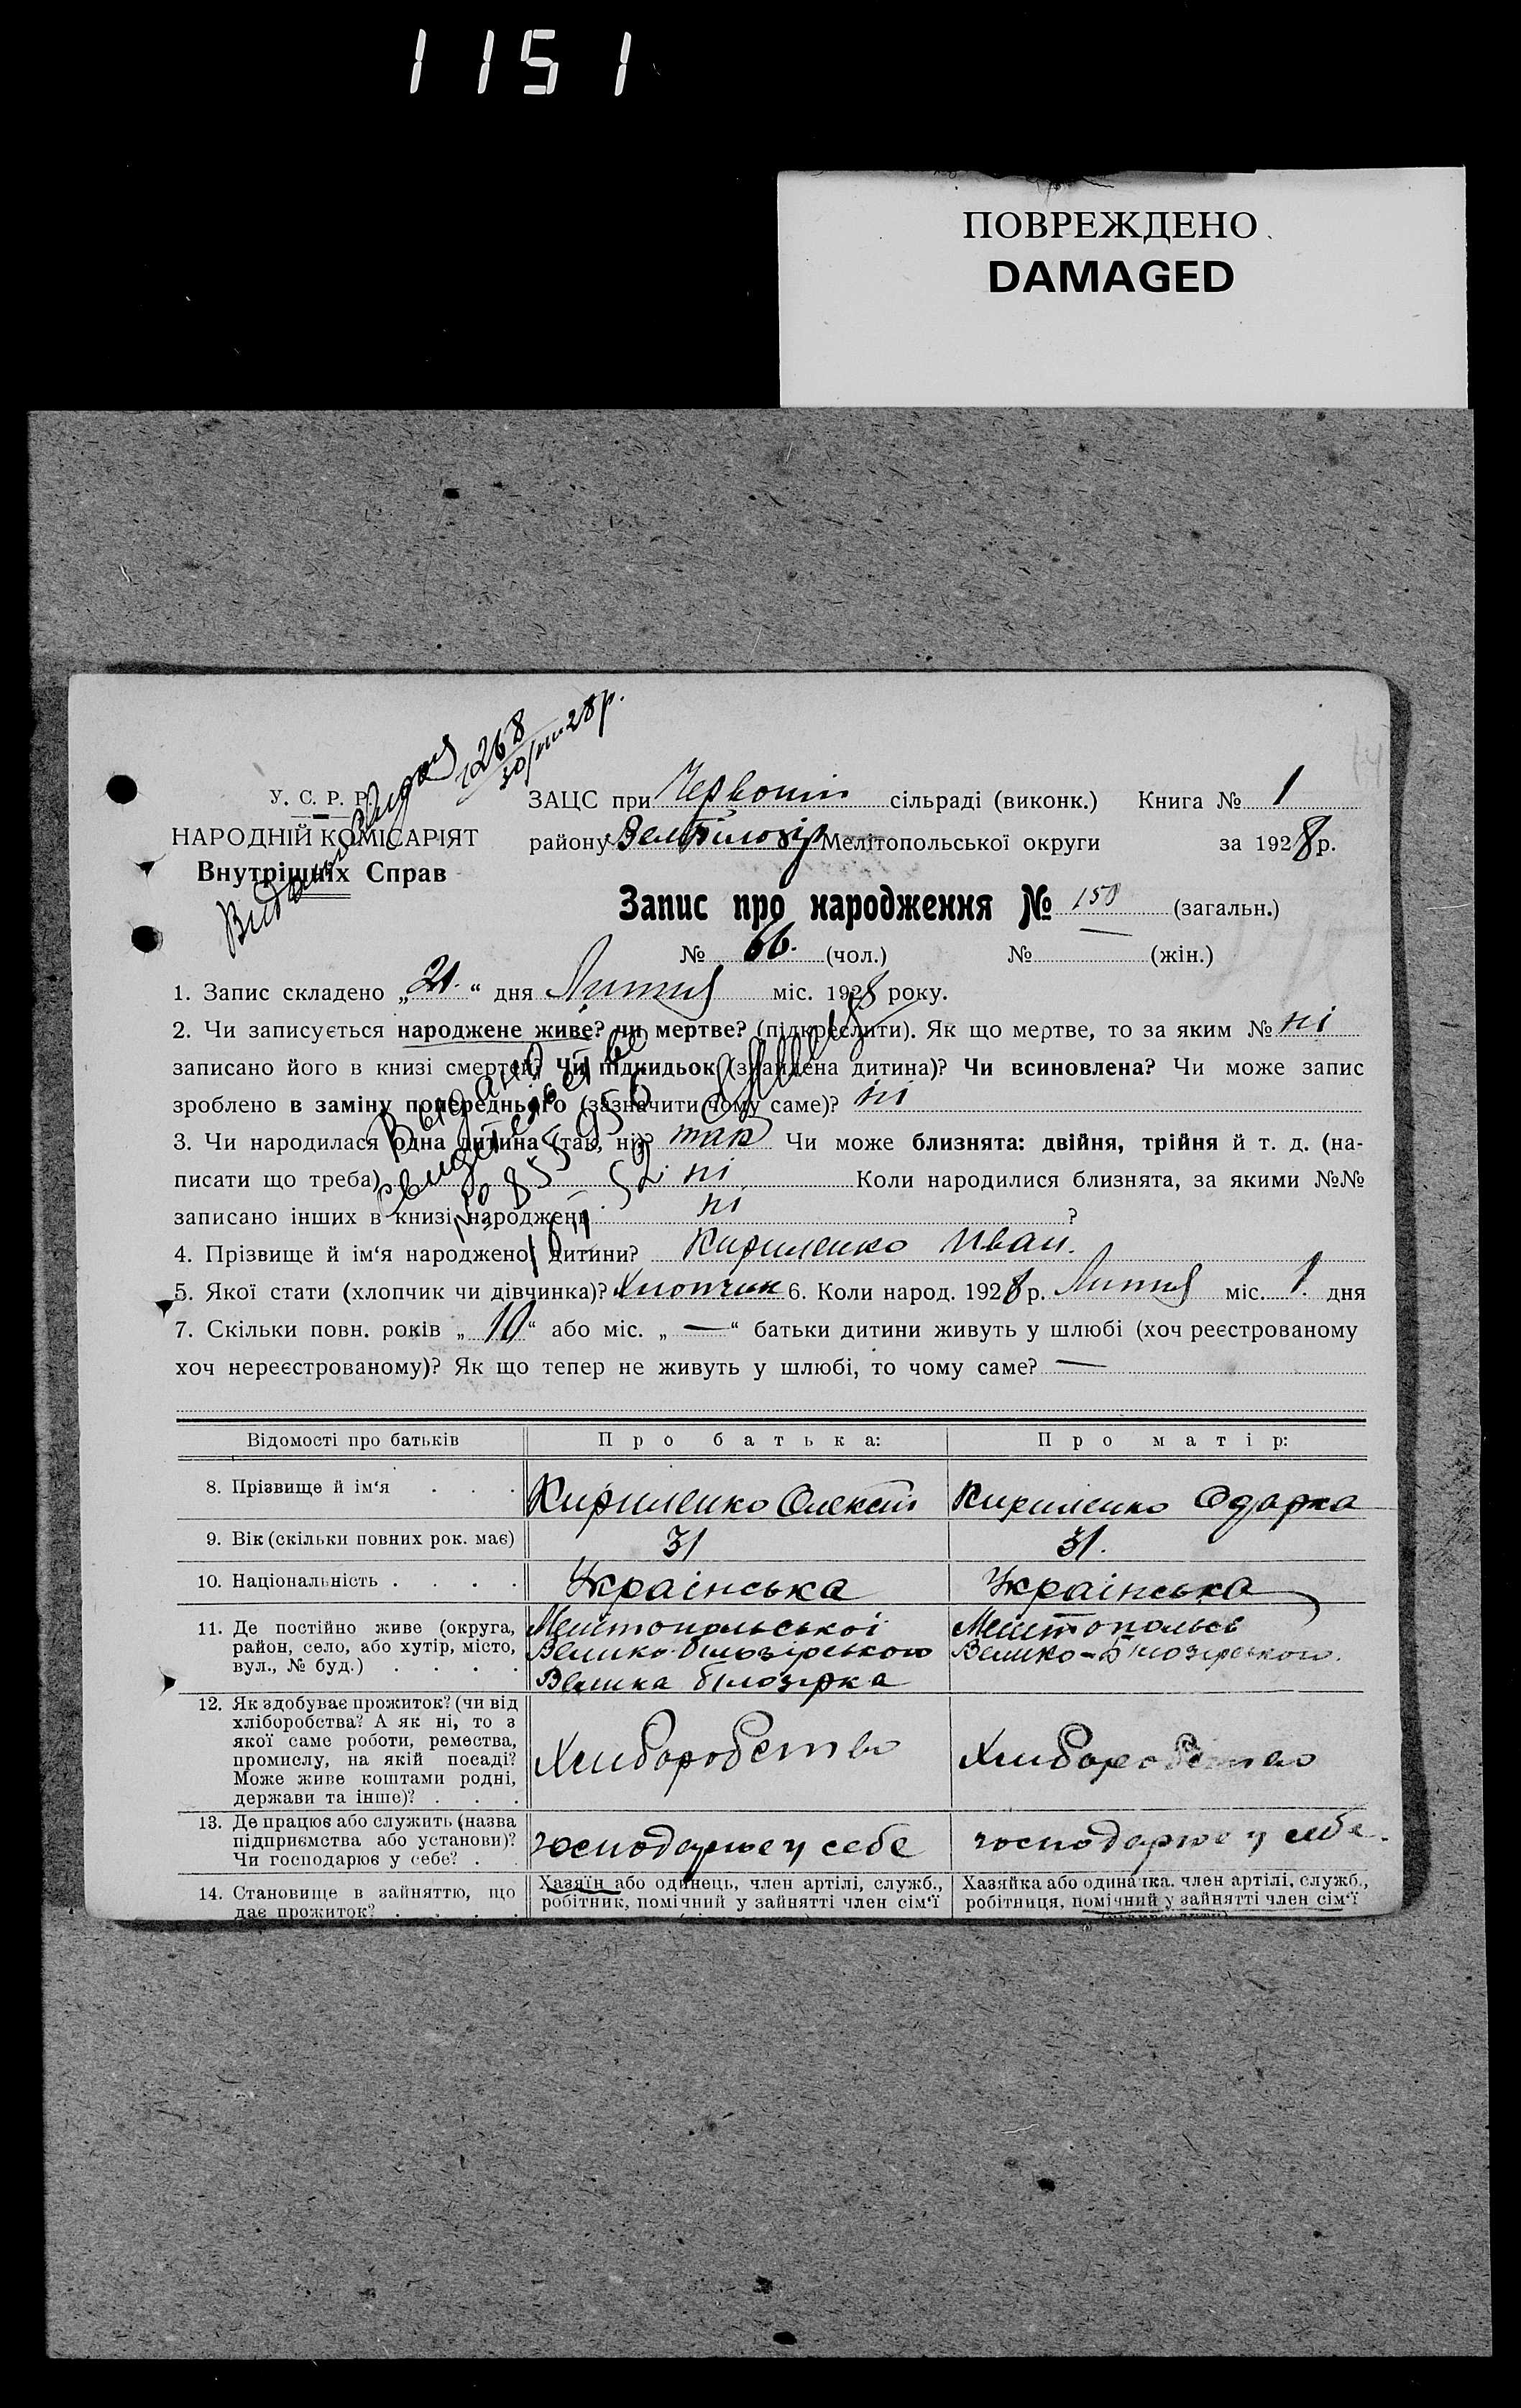 1151
ПОВРЕЖДЕНО
DAMAGED
1268
30/VIII 28 р.
У. С. Р. Р.
НАРОДНІЙ КОМІСАРІЯТ
Внутрішніх Справ
ЗАЦС при Червоній сільраді (виконк.) Книга № 1
району Вел Білозір Мелітопольської округи за 1928 р.
Запис про народження № 150 (загальн.)
№ 66. (чол.) № — (жін.)
1. Запис складено „21.“ дня Лютня міс. 1928 року.
2. Чи записується народжене живе? чи мертве? (підкреслити). Як що мертве, то за яким № ні
записано його в книзі смертей? Чи підкидьок (знайдена дитина)? Чи всиновлена? Чи може запис
зроблено в заміну попереднього (зазначити чому саме)? ні
3. Чи народилася одна дитина (так, ні)? так Чи може близнята: двійня, трійня й т. д. (на-
писати що треба) ні Коли народилися близнята, за якими №№
записано інших в книзі народжень ні ?
Выдано
свидетельство
4. Прізвище й ім‘я народженої дитини? Кириленко Иван.
5. Якої стати (хлопчик чи дівчинка)? Хлопчик 6. Коли народ. 1928 р. Лютня міс. 1. дня
7. Скільки повн. років „10“ або міс. „—“ батьки дитини живуть у шлюбі (хоч реєстрованому
хоч нереєстрованому)? Як що тепер не живуть у шлюбі, то чому саме? —
Відомості про батьків Про батька: Про матір:
8. Прізвище й ім‘я . . . Кириленко Олексій Кириленко Одарка
9. Вік (скільки повних рок. має) 31 31.
10. Національність . . . . Українська Українська
11. Де постійно живе (округа, Мелітопольської Мелітопольсь
район, село, або хутір, місто, Велико-Білозірського Велико-Білозірського.
вул., № буд.) . . . . Велика Білозірка
12. Як здобуває прожиток? (чи від
хліборобства? А як ні, то з
якої саме роботи, ремества,
промислу, на якій посаді? Хліборобство Хліборобство
Може живе коштами родні,
держави та інше)? . . .
13. Де працює або служить (назва
підприємства або установи)? господарює у себе господарює у себе.
Чи господарює у себе? .
14. Становище в зайняттю, що Хазяїн або одинець, член артілі, служб., Хазяйка або одиначка. член артілі, служб.,
дає прожиток? . . . . робітник, помічний у зайнятті член сім‘ї робітниця, помічний у зайнятті член сім‘ї